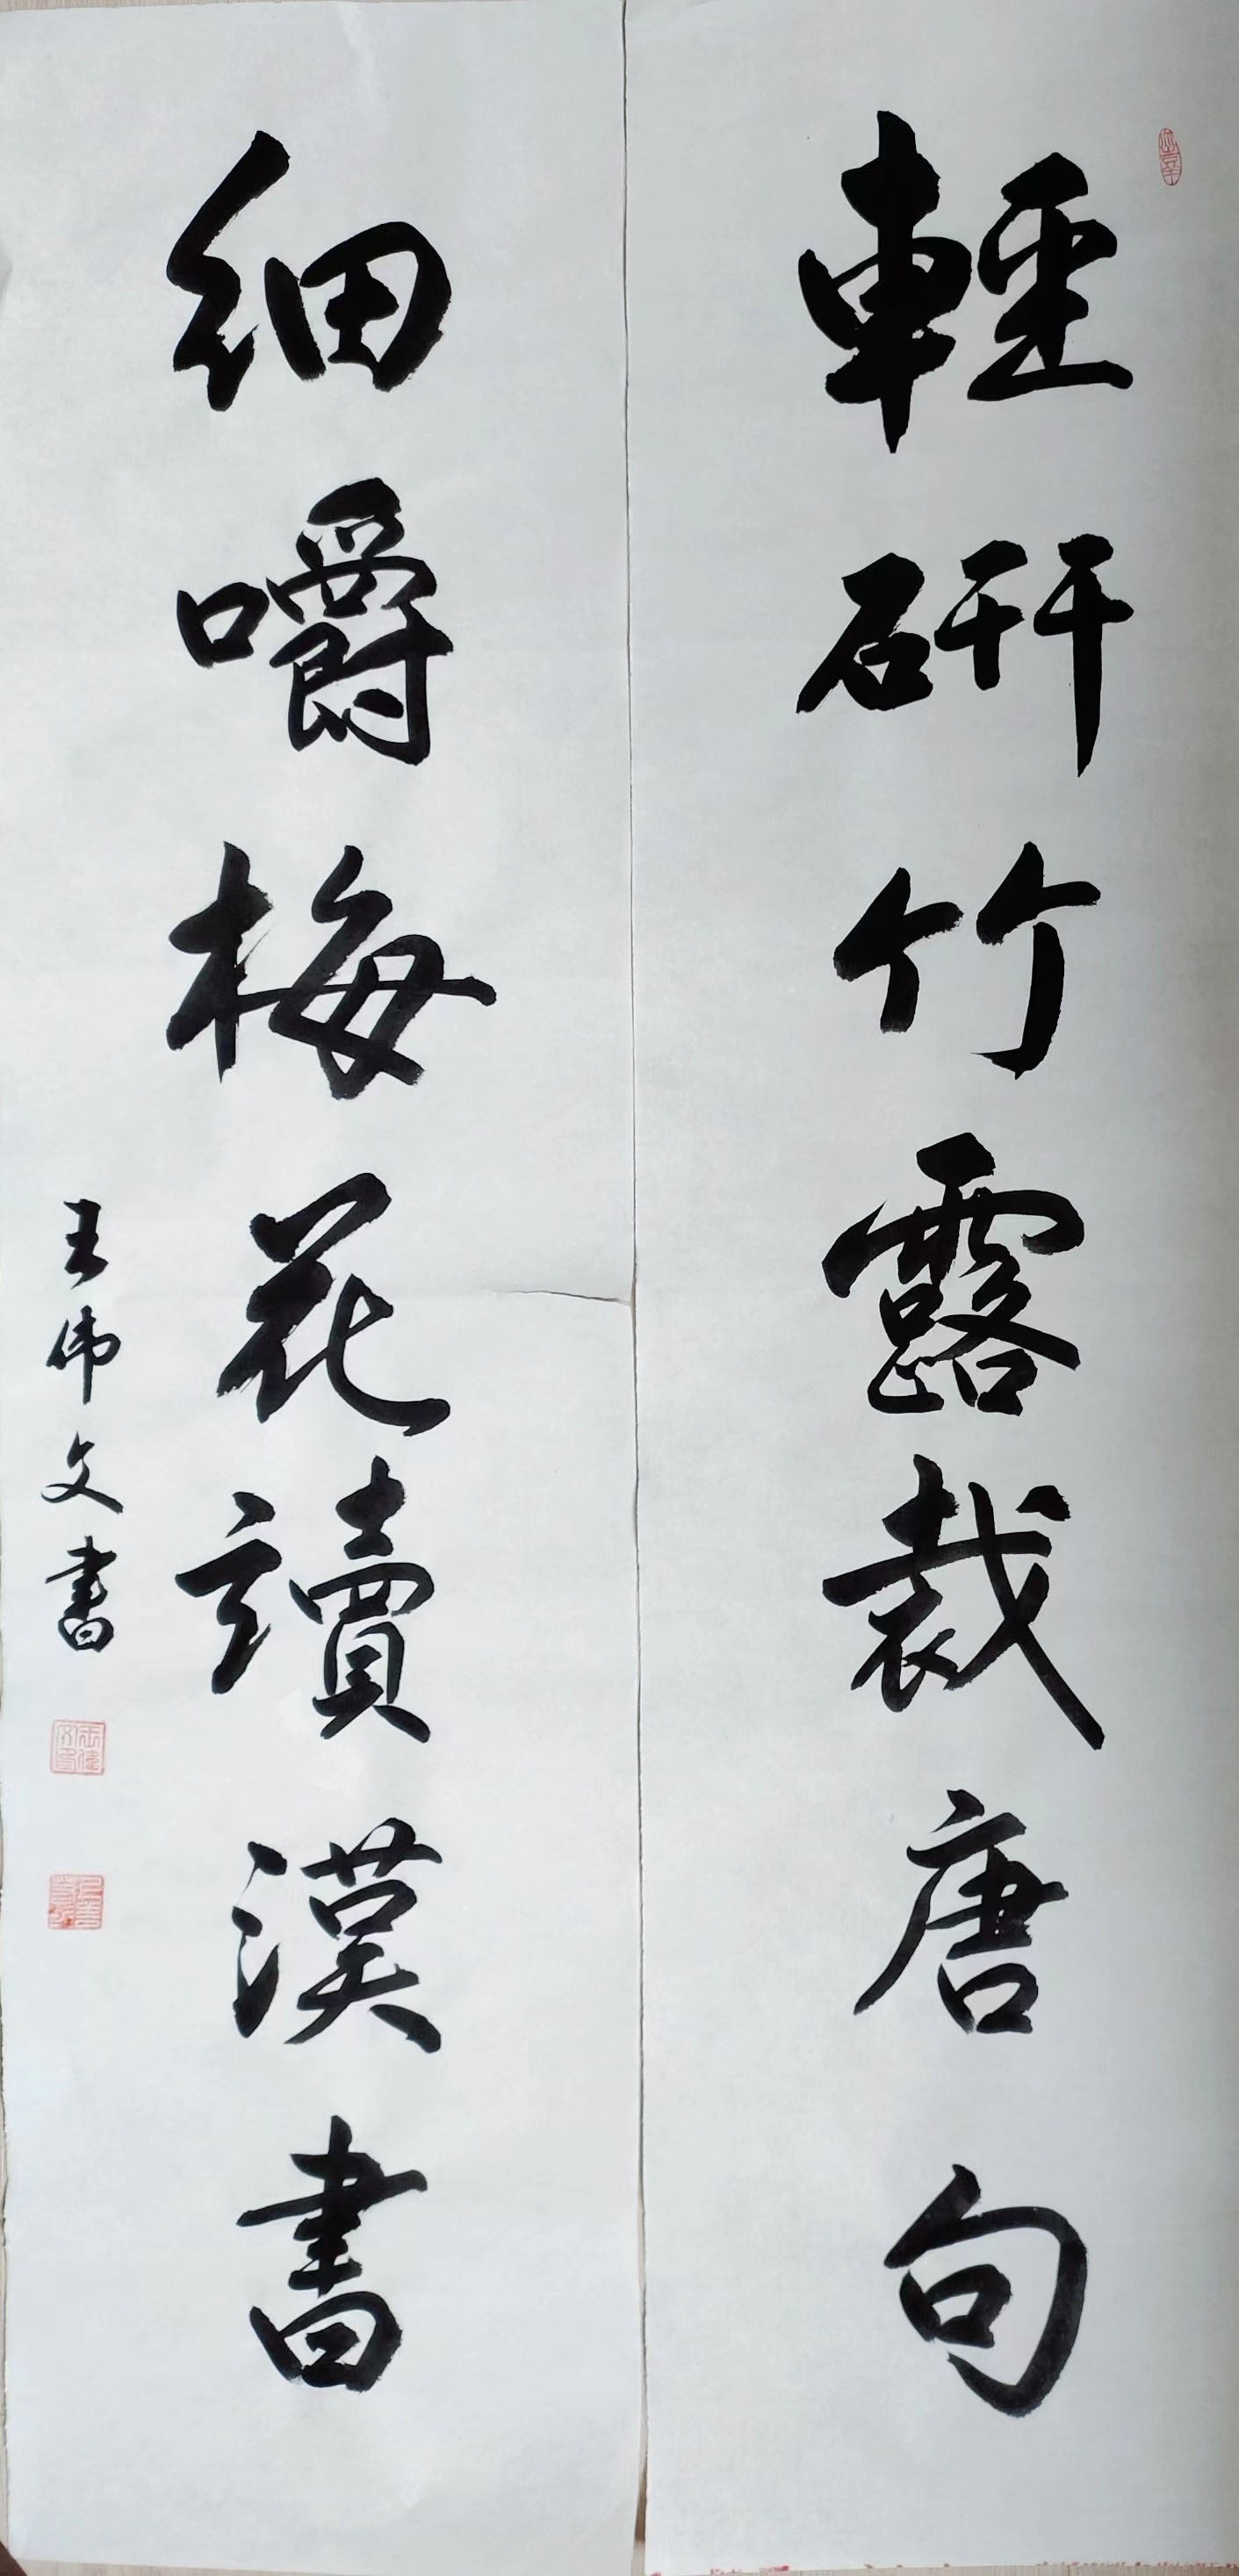 輕研竹露裁唐句
細嚼梅花讀漢書
王伟文書